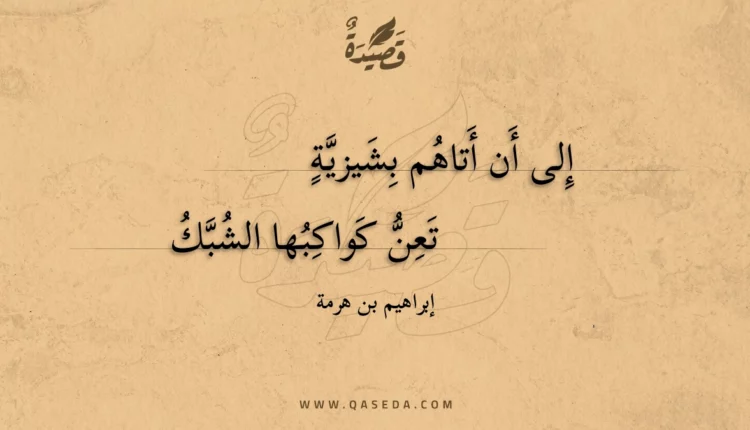 قَصِيْدَةٌ
إِلى أَن أَتاهُم بِشَيزِيَّةٍ
تَعِنُّ كَواكِبُها الشُبَّكُ
إبراهيم بن هرمة
WWW.QASEDA.COM